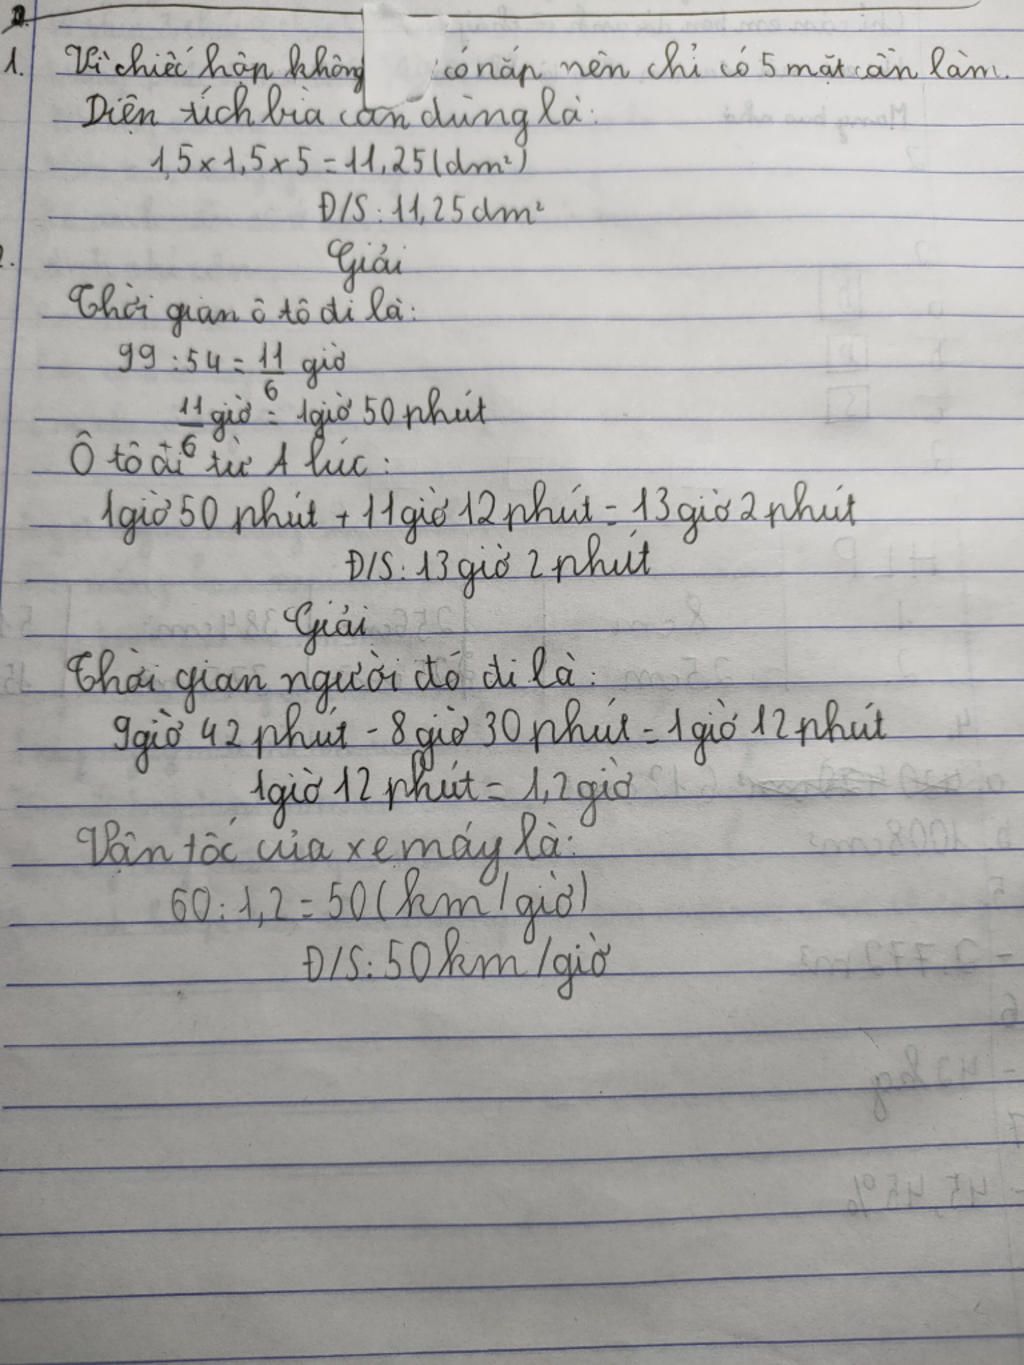 1. Vì chiếc hộp không có nắp nên chỉ có 5 mặt cần làm.
Diện tích bìa cần dùng là:
1,5 x 1,5 x 5 = 11,25 (dm²)
Đ/S: 11,25 dm²
2. Giải
Thời gian ô tô đi là:
99 : 54 = 11/6 giờ
11/6 giờ = 1 giờ 50 phút
Ô tô đi từ A lúc:
1 giờ 50 phút + 11 giờ 12 phút = 13 giờ 2 phút
Đ/S: 13 giờ 2 phút
Giải
Thời gian người đó đi là:
9 giờ 42 phút - 8 giờ 30 phút = 1 giờ 12 phút
1 giờ 12 phút = 1,2 giờ
Vận tốc của xe máy là:
60 : 1,2 = 50 (km/giờ)
Đ/S: 50 km/giờ